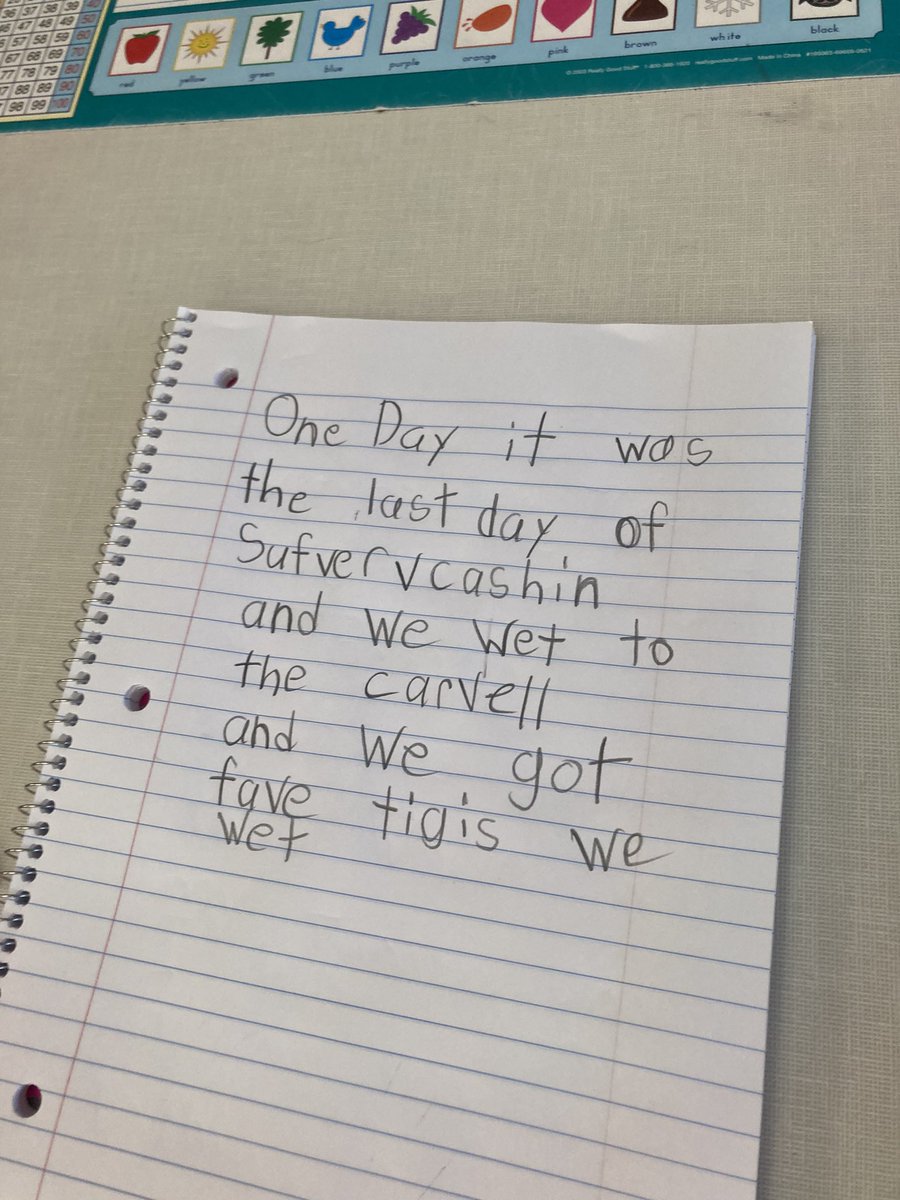 37 38 39 40
47 48 49 50
57 58 59 60
67 68 69 70
77 78 79 80
88 89 90
98 99 100
red yellow green blue purple orange pink brown white black
Really Good Stuff® 1-800-366-1920 reallygoodstuff.com Made in China
One Day it was
the last day of
Sufver vcashin
and we wet to
the carvell
and we got
fave tigis we
wet